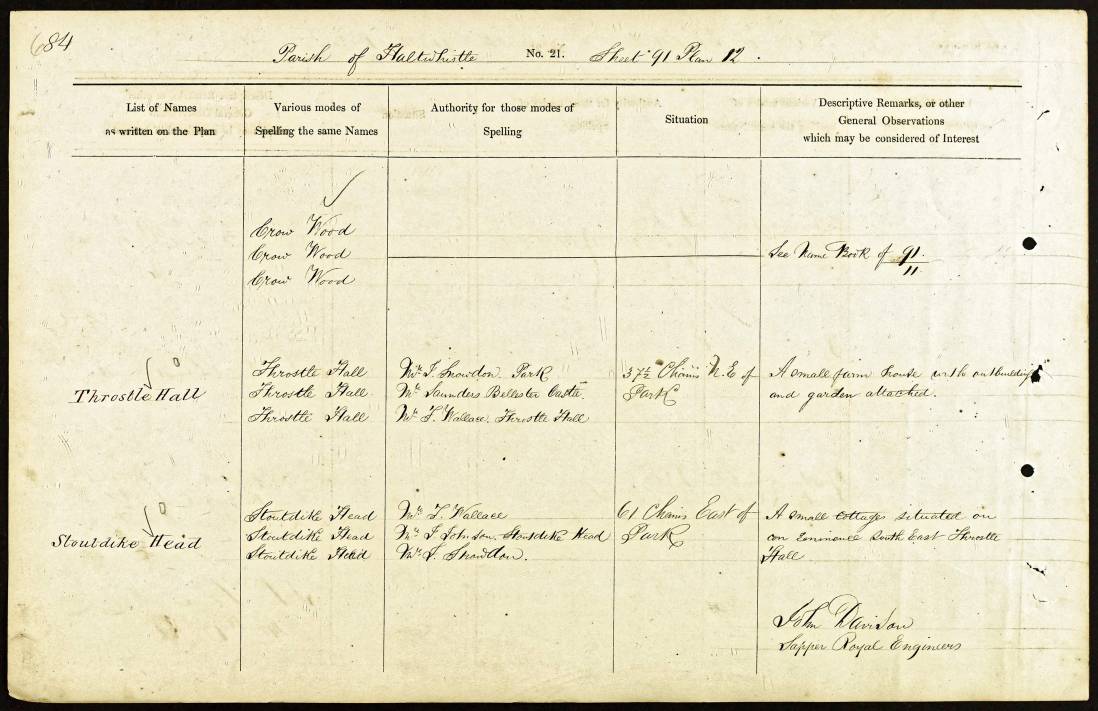 684
Parish of Haltwhistle No. 21. Sheet 91 Plan 12.
List of Names
as written on the Plan
Various modes of
Spelling the same Names
Authority for those modes of
Spelling
Situation
Descriptive Remarks, or other
General Observations
which may be considered of Interest
Crow Wood
Crow Wood
Crow Wood
See Name Book of 91
11
Throstle Hall
Throstle Hall
Throstle Hall
Throstle Hall
Mr. J. Snowdon Park
Mr. Saunders Bellester Castle
Mr. T. Wallace. Throstle Hall
37½ Chains N.E of
Park
A small farm house with outbuildings
and garden attached.
Stouldike Head
Stouldike Head
Stouldike Head
Stouldike Head
Mr. T. Wallace
Mr. T Johnson, Stouldike Head
Mr. J. Snowdon.
61 Chains East of
Park
A small cottage situated on
an Eminence South East Throstle
Hall
John Davison
Sapper Royal Engineers